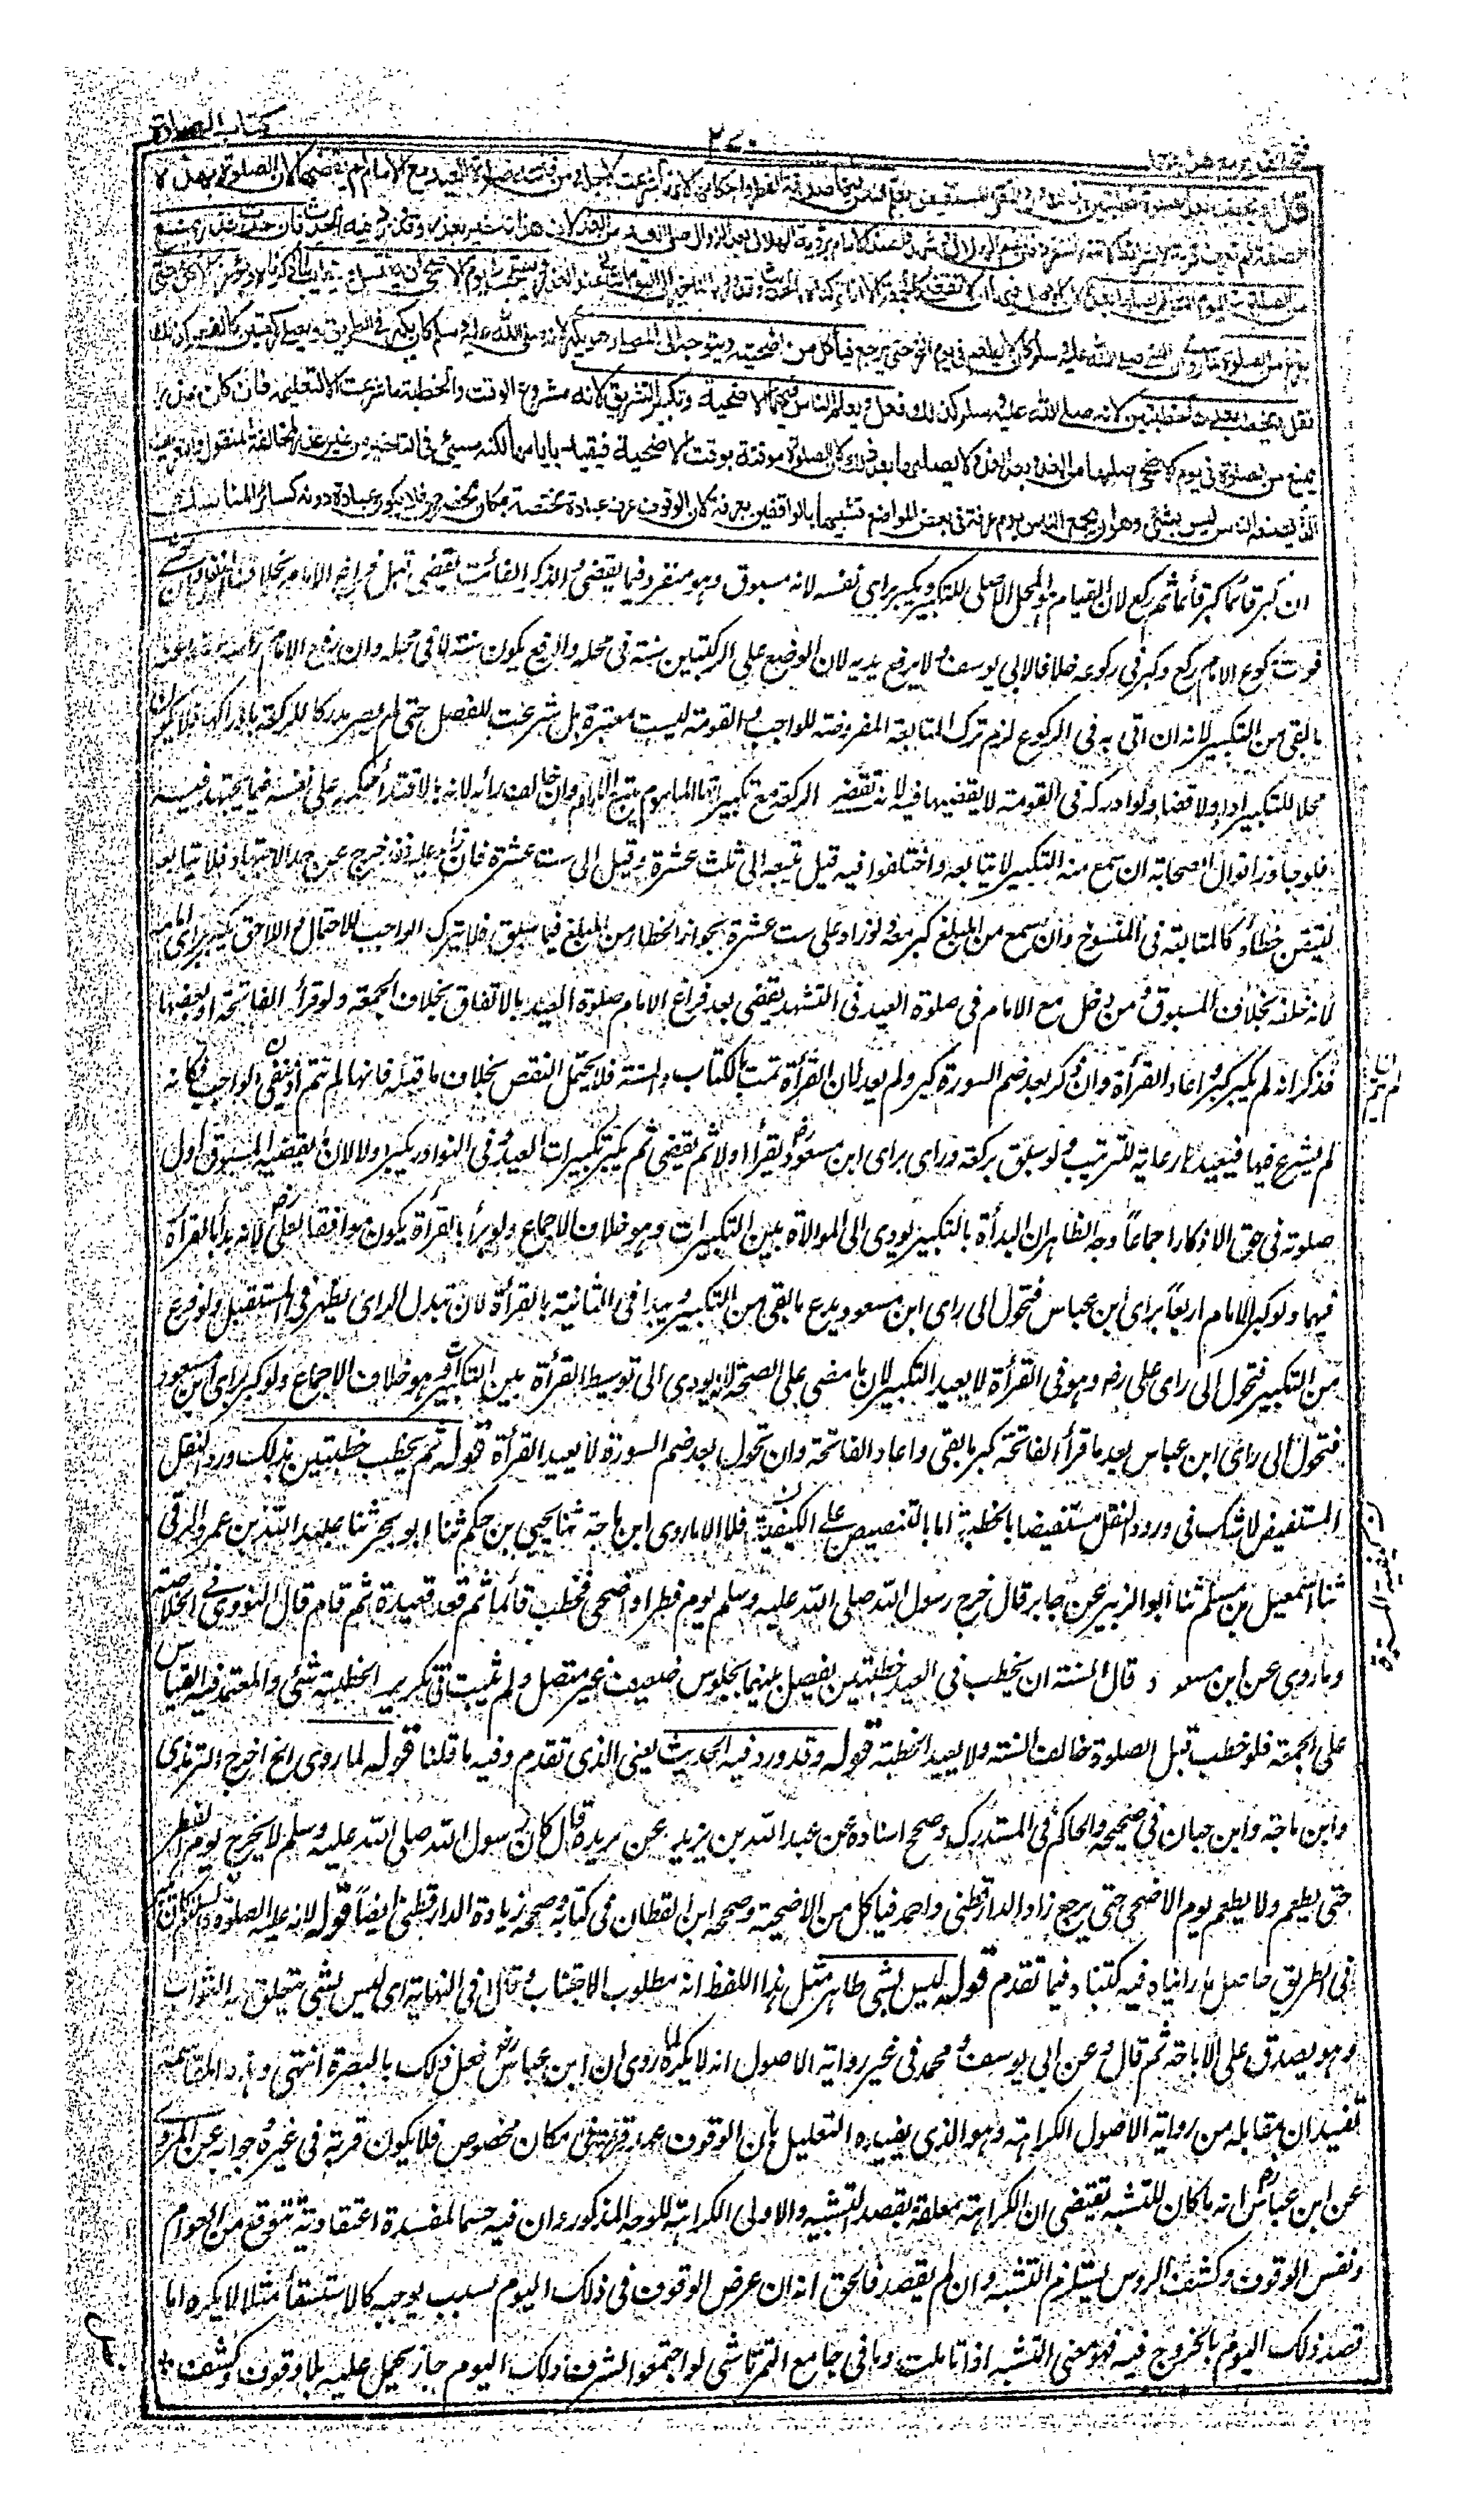 كتاب الصلاة
٢٧٠
فتح القدير مع هداية ج ١
قال ثم يخطب بعد الصلوة خطبتين بذلك ورد النقل المستفيض يعلم الناس فيها صدقة الفطر واحكامها لانها شرعت لاجله ومن فاتته صلوة العيد مع الامام لم يقضها لان الصلوة بهذه
الصفة لم تعرف قربة الا بشرائط لا تتم بالمنفرد فان غم الهلال وشهدوا عند الامام برؤية الهلال بعد الزوال صلى العيد من الغد لان هذا تاخير بعذر وقد ورد فيه الحديث فان حدث عذر يمنع
من الصلوة في اليوم الثاني لم يصلها بعده لان الاصل فيها ان لا تقضى كالجمعة الا انا تركناه بالحديث وقد ورد بالتاخير الى اليوم الثاني عند العذر ويستحب في يوم الاضحى ان يغتسل ويتطيب لما ذكرناه ويؤخر الاكل حتى
يفرغ من الصلوة لما روي ان النبي صلى الله عليه وسلم كان لا يطعم في يوم النحر حتى يرجع فيأكل من اضحيته ويتوجه الى المصلى وهو يكبر لانه صلى الله عليه وسلم كان يكبر في الطريق ويصلي ركعتين كالفطر كذلك
نقل ويخطب بعدها خطبتين لانه صلى الله عليه وسلم كذلك فعل ويعلم الناس فيهما الاضحية وتكبير التشريق لانه مشروع الوقت والخطبة ما شرعت الا لتعليمه فان كان عذر
يمنع من الصلوة في يوم الاضحى صلاها من الغد وبعد الغد ولا يصليها بعد ذلك لان الصلوة موقتة بوقت الاضحية فيتقيد بايامها لكنه مسيئ في التاخير من غير عذر لمخالفة المنقول والتعريف
الذي يصنعه الناس ليس بشئ وهو ان يجمع الناس يوم عرفة في بعض المواضع تشبيها بالواقفين بعرفة لان الوقوف عرف عبادة مختصة بمكان مخصوص فلا يكون عبادة دونه كسائر المناسك
ان كبر قائما كبر قائما ثم ركع لان القيام هو المحل الاصلي للتكبير ويكبر براي نفسه لانه مسبوق وهو منفرد فيما يقضي والذكر الفائت يقضى قبل فراغ الامام بخلاف الفعل وان خشي
فوت ركوع الامام ركع وكبر في ركوعه خلافا لابي يوسف ولا يرفع يديه لان الوضع على الركبتين سنة في محله والرفع يكون سنة لا في محله وان رفع الامام راسه سقط عنه
ما بقي من التكبير لانه ان اتى به في الركوع لزم ترك المتابعة المفروضة للواجب والقومة ليست معتبرة بل شرعت للفصل حتى لم يصر مدركا للركعة بادراكها فلا تكون
محلا للتكبير اداء ولا قضاء ولو ادركه في القومة لا يقضيها فيه لانه تقضى الركعة مع تكبيراتها الماموم يتبع الامام وان خالف رأيه لانه بالاقتداء حكمه على نفسه فيما يجتهد فيه
فلو جاوز اقوال الصحابة ان سمع منه التكبير لا يتابعه واختلفوا فيه قيل يتبعه الى ثلث عشرة وقيل الى ست عشرة فان زاد عليه فقد خرج عن حد الاجتهاد فلا يتابعه
لتيقن خطأه كالمتابعة في المنسوخ وان سمع من المبلغ كبر معه ولو زاد على ست عشرة بجواز الخطأ من المبلغ فيما سبق فلا يترك الواجب للاحتمال واللاحق يكبر براي امامه
لانه خلفه بخلاف المسبوق ومن دخل مع الامام في صلوة العيد في التشهد يقضي بعد فراغ الامام صلوة العيد بالاتفاق بخلاف الجمعة ولو قرأ الفاتحة او بعضها
فذكر انه لم يكبر كبر واعاد القرأة وان ذكر بعد ضم السورة كبر ولم يعد لان القرأة تمت بالكتاب والسنة فلا يحتمل النقض بخلاف ما قبله فانها لم تتم اذ بقي الواجب فكانه
لم يشرع فيها فيعيدها رعاية للترتيب ولو سبق بركعة وراى براى ابن مسعود رض يقرأ اولا ثم يقضي ثم يكبر تكبيرات العيد وفي النوادر يكبر اولا لان ما يقضيه المسبوق اول
صلوته في حق الاذكار اجماعا وجه الظاهر ان البدأة بالتكبير يودي الى الموالاة بين التكبيرات وهو خلاف الاجماع ولو بدأ بالقرأة يكون موافقا لعلي رض لانه بدأ بالقرأة
فيهما ولو كبر الامام اربعا براى ابن عباس فتحول الى راى ابن مسعود يدع ما بقي من التكبير ويبدا في الثانية بالقرأة لان تبدل الراى يظهر في المستقبل ولو فرغ
من التكبير فتحول الى راى علي رض وهو في القرأة لا يعيد التكبير لان ما مضى على الصحة لانه يودي الى توسيط القرأة بين التكبيرات وهو خلاف الاجماع ولو كبر براى ابن مسعود
فتحول الى راى ابن عباس بعد ما قرأ الفاتحة كبر ما بقي واعاد الفاتحة وان تحول بعد ضم السورة لا يعيد القرأة قوله ثم يخطب خطبتين بذلك ورد النقل
المستفيض لا شك في ورود النقل مستفيضا بالخطبة اما بالتنصيص على الكيفية فلا الا ما روى ابن ماجة ثنا يحيى بن حكيم ثنا ابو بحر ثنا عبيد الله بن عمرو الرقي
ثنا اسمعيل بن مسلم ثنا ابو الزبير عن جابر قال خرج رسول الله صلى الله عليه وسلم يوم فطر او اضحى فخطب قائما ثم قعد قعيدة ثم قام قال النووي في الخلاصة
وما روي عن ابن مسعود قال السنة ان يخطب في العيد خطبتين يفصل بينهما بجلوس ضعيف غير متصل ولم يثبت في تكرير الخطبة شئ والمعتمد فيه القياس
على الجمعة فلو خطب قبل الصلوة خالف السنة ولا يعيد الخطبة قوله وقد ورد فيه الحديث يعني الذي تقدم وفيه ما قلنا قوله لما روي الخ اخرج الترمذي
وابن ماجة وابن حبان في صحيحه والحاكم في المستدرك وصحح اسناده عن عبد الله بن بريدة عن بريدة قال كان رسول الله صلى الله عليه وسلم لا يخرج يوم الفطر
حتى يطعم ولا يطعم يوم الاضحى حتى يرجع زاد الدارقطني واحمد فياكل من الاضحية وصححه ابن القطان في كتابه وصحح زيادة الدارقطني ايضا قوله لانه عليه الصلوة والسلام كان يكبر
في الطريق حاصل ما رايناه فيه كتبناه فيما تقدم قوله ليس بشئ ظاهر مثل هذا اللفظ انه مطلوب الاجتناب وقال في النهاية اى ليس بشئ يتعلق به الثواب
وهو يصدق على الاباحة ثم قال وعن ابي يوسف ومحمد في غير رواية الاصول انه لا يكره لما روي ان ابن عباس رض فعل ذلك بالبصرة انتهى وهذه المقاسمة
تفيد ان مقابله من رواية الاصول الكراهة وهو الذي يفيده التعليل بأن الوقوف عهد قربة في مكان مخصوص فلا يكون قربة في غيره وجوابه عن المروي
عن ابن عباس رض انه ما كان للتشبه يقتضي ان الكراهة معلقة بقصد التشبيه والاولى الكراهة للوجه المذكور وان فيه حسما لمفسدة اعتقادية تتوقع من العوام
ونفس الوقوف وكشف الروس يستلزم التشبه وان لم يقصد فالحق انه ان عرض الوقوف في ذلك اليوم بسبب يوجبه كالاستسقاء مثلا لا يكره اما
قصد ذلك اليوم بالخروج فيه فهو معنى التشبه اذا تأملت وما في جامع التمرتاشي لو اجتمعوا لشرف ذلك اليوم جاز يحمل عليه بلا وقوف وكشف